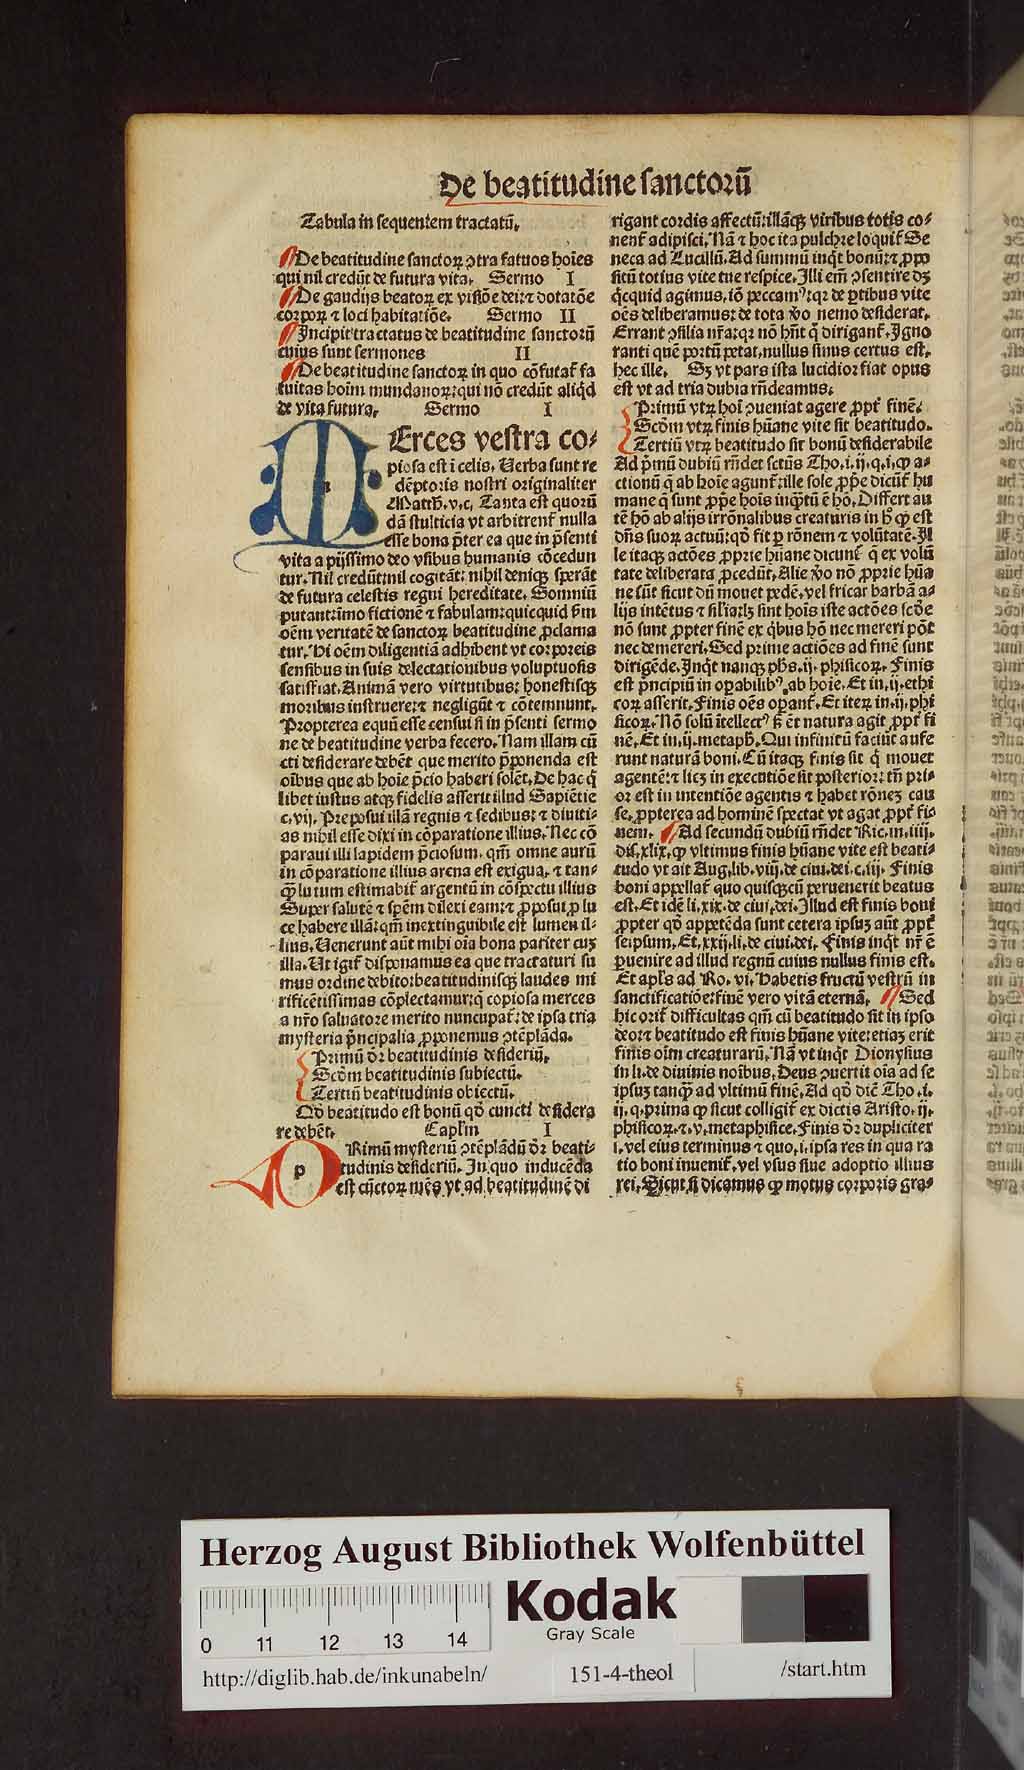 De beatitudine sanctorū
Tabula in sequentem tractatū.
De beatitudine sanctoꝝ ꝯtra fatuos hoīes
qui nil credūt de futura vita. Sermo I
De gaudijs beatoꝝ ex visiōe dei: ⁊ dotatōe
corpoꝝ ⁊ loci habitatiōe. Sermo II
Incipit tractatus de beatitudine sanctorū
cuius sunt sermones II
De beatitudine sanctoꝝ in quo cōfutat᷑ fa
tuitas hoim mundanoꝝ: qui nō credūt aliq̇d
de vita futura. Sermo I
MErces vestra co-
piosa est ī celis. Verba sunt re
dēptoris nostri originaliter
Matth̄. v. c. Tanta est quorū
dā stulticia vt arbitrent᷑ nulla
esse bona p̄ter ea que in p̄senti
vita a pijssimo deo vsibus humanis cōcedun
tur. Nil credūt: nil cogitāt: nihil deniqꝫ sperāt
de futura celestis regni hereditate. Somniū
putant: īmo fictionē ⁊ fabulam: quicquid ẜm
oēm veritatē de sanctoꝝ beatitudine ꝓclama
tur. Hi oēm diligentiā adhibent vt corporeis
sensibus in suis delectationibus voluptuosis
satisfiat. Animā vero virtutibus: honestisqꝫ
moribus instruere: ⁊ negligūt ⁊ cōtemnunt.
Propterea equū esse censui si in p̄senti sermo
ne de beatitudine verba fecero. Nam illam cū
cti desiderare debēt que merito p̄ponenda est
oībus que ab hoīe p̄cio haberi solēt. De hac q̇
libet iustus atqꝫ fidelis asserit illud Sapiētie
c. vij. Preposui illā regnis ⁊ sedibus: ⁊ diuiti-
as nihil esse dixi in cōparatione illius. Nec cō
paraui illi lapidem p̄ciosum. qm̄ omne aurū
in cōparatione illius arena est exigua. ⁊ tan-
ꝙ̄ lutum estimabit᷑ argentū in cōspectu illius
Super salutē ⁊ spēm dilexi eam: ⁊ ꝓposui ꝓ lu
ce habere illā: qm̄ inextinguibile est lumen il-
lius. Venerunt aūt mihi oīa bona pariter cuꝫ
illa. Ut igit᷑ disponamus ea que tractaturi su
mus ordine debito: beatitudinisqꝫ laudes mi
rificētissimas cōplectamur: q̄ copiosa merces
a nr̄o saluatore merito nuncupat᷑: de ipsa tria
mysteria p̄ncipalia ꝓponemus ꝯtēplāda.
Primū dr̄ beatitudinis desideriū.
Scd̄m beatitudinis subiectū.
Tertiū beatitudinis obiectū.
Qd̄ beatitudo est bonū qd̄ cuncti desidera
re debēt. Capl̄m I
PRimū mysteriū ꝯtēplādū dr̄ beati-
tudinis desideriū. In quo inducēda
est cūctoꝝ mēs vt ad beatitudinē di
rigant cordis affectū: illāqꝫ viribus totis co-
nent᷑ adipisci. Nā ⁊ hoc ita pulchre loquit᷑ Se
neca ad Lucillū. Ad summū inq̇t bonū: ⁊ ꝓpo
situ totius vite tue respice. Illi em̄ ꝯsentire dꝫ
q̇cquid agimus. iō peccamꝰ: qꝛ de ꝑtibus vite
oēs deliberamus: de tota v̊o nemo desiderat.
Errant ꝯsilia nr̄a: qꝛ nō hn̄t q̊ dirigant᷑. Igno
ranti quē portū petat. nullus sinus certus est.
hec ille. Sꝫ vt pars ista lucidior fiat opus
est vt ad tria dubia rn̄deamus.
Primū vtꝝ hoī ꝯueniat agere ꝓpt᷑ finē.
Scd̄m vtꝝ finis hūane vite sit beatitudo.
Tertiū vtꝝ beatitudo sit bonū desiderabile
Ad p̄mū dubiū rn̄det sctūs Tho. i. ij. q. i. ꝙ a-
ctionū q̄ ab hoīe agunt᷑: ille sole ꝓp̄e dicūt᷑ hu
mane q̄ sunt ꝓp̄e hoīs inq̄tū ē hō. Differt au
tē hō ab alijs irrōnalibus creaturis in hͦ ꝙ est
dn̄s suoꝝ actuū: qd̄ fit ꝑ rōnem ⁊ volūtatē. Il
le itaqꝫ actōes ꝓprie hūane dicunt᷑ q̄ ex volū
tate deliberata ꝓcedūt. Alie v̊o nō ꝓprie hūa
ne sūt sicut dū mouet pedē. vel fricat barbā a-
lijs intētus ⁊ sil̄ia: lꝫ sint hoīs iste actōes scd̄e
nō sunt ꝓpter finē ex q̇bus hō nec mereri pōt
nec demereri. Sed prime actiōes ad finē sunt
dirigēde. Inq̇t nanqꝫ ph̄s. ij. phisicoꝝ. Finis
est p̄ncipiū in oꝑabilibꝰ ab hoīe. Et in. ij. ethi
coꝝ asserit. Finis oēs oꝑant᷑. Et iteꝝ in. ij. phi
sicoꝝ. Nō solū ītellectꝰ ß ēt natura agit ꝓpt᷑ fi
nē. Et in. ij. metaph̄. Qui infinitū faciūt aufe
runt naturā boni. Cū itaqꝫ finis sit q̄ mouet
agentē: ⁊ licꝫ in executiōe sit posterior: tn̄ pri-
or est in intentiōe agentis ⁊ habet rōneꝫ cau
se. ꝓpterea ad hominē spectat vt agat ꝓpt᷑ fi-
nem. Ad secundū dubiū rn̄det Ric. in. iiij.
dis. xlix. ꝙ vltimus finis hūane vite est beati-
tudo vt ait Aug. lib. viij. de ciui. dei. c. iij. Finis
boni appellat᷑ quo quisqꝫ cū peruenerit beatus
est. Et idē li. xix. de ciui. dei. Illud est finis boni
ꝓpter qd̄ appetēda sunt cetera ipsuꝫ aūt ꝓpt᷑
seipsum. Et. xxij. li. de ciui. dei. Finis inq̇t nr̄ ē
ꝑuenire ad illud regnū cuius nullus finis est.
Et apl̄s ad Ro. vi. Habetis fructū vestrū in
sanctificatiōe: finē vero vitā eternā. Sed
hic orit᷑ difficultas qm̄ cū beatitudo sit in ipso
deo: ⁊ beatitudo est finis hūane vite: etiaꝫ erit
finis oīm creaturarū. Nā vt inq̇t Dionysius
in li. de diuinis noībus. Deus ꝯuertit oīa ad se
ipsuꝫ tanꝙ̄ ad vltimū finē. Ad qd̄ dicē Tho. i.
ij. q. prima ꝙ sicut colligit᷑ ex dictis Aristo. ij.
phisicoꝝ. ⁊. v. metaphisice. Finis dr̄ dupliciter
i. vel eius terminus ⁊ quo. i. ipsa res in qua ra
tio boni inuenit᷑. vel vsus siue adoptio illius
rei. Sicut si dicamus ꝙ motus corporis gra-
Herzog August Bibliothek Wolfenbüttel
Kodak
Gray Scale
0 11 12 13 14
http://diglib.hab.de/inkunabeln/
151-4-theol
/start.htm